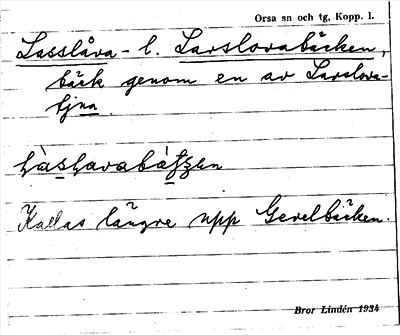 Orsa sn och tg, Kopp. l.
Lasslåva- l. Larslovabäcken,
bäck genom en av Larslova-
tjna
Kallas längre upp Gevelbäcken.
Bror Lindén 1934